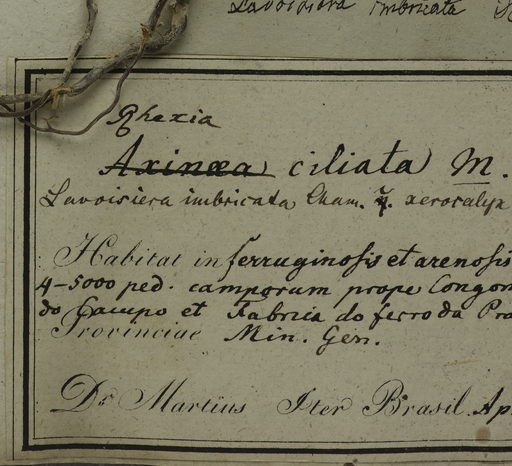 Lavoisiera imbricata
Rhexia
Axinæa ciliata M.
Lavoisiera imbricata Cham. xerocalyx
Habitat in ferruginosis et arenosis
4-5000 ped. camporum prope Congon
do Campo et Fabrica do ferro da Pra
Provinciae Min. Gen.
Dr Martius Iter Brasil. Ap